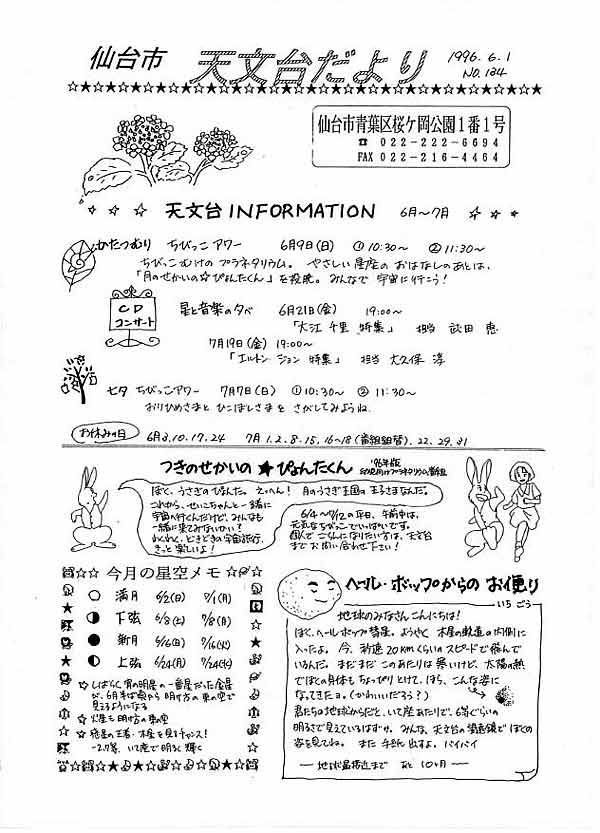 仙台市 天文台だより 1996.6.1
NO.134
仙台市青葉区桜ケ岡公園1番1号
☎ 022-222-6694
FAX 022-216-4464
天文台 INFORMATION 6月~7月
かたつむり ちびっこアワー 6月9日(日) ①10:30~ ②11:30~
ちびっこむけのプラネタリウム。やさしい星座のおはなしのあとは、
「月のせかいの☆ぴょんたくん」を投映。みんなで宇宙に行こう!
CD
コンサート
星と音楽の夕べ 6月21日(金) 19:00~
「大江千里 特集」 担当 武田 恵
7月19日(金) 19:00~
「エルトン・ジョン 特集」 担当 大久保 淳
七夕 ちびっこアワー 7月7日(日) ①10:30~ ②11:30~
おりひめさまと ひこぼしさまを さがしてみようね
お休みの日 6月3,10,17,24 7月1,2,8,15,16~18(番組組替),22,29,31
つきのせかいの★ぴょんたくん '96年版
幼児向けプラネタリウム番組
ぼく、うさぎのぴょんた。えっへん! 月のうさぎ王国の王子さまなんだ。
これから、せいこちゃんと一緒に
宇宙へ行くんだけど、みんなも
一緒に来てみないかい?
わくわく、どきどきの宇宙旅行、
きっと楽しいよ!
6/4~7/12の平日、午前中は、
元気なちびっこでいっぱいです。
個人でごらんになりたい方は、天文台
までお問い合わせ下さい!
今月の星空メモ
満月 6/2(日) 7/1(月)
下弦 6/8(土) 7/8(月)
新月 6/16(日) 7/16(火)
上弦 6/24(月) 7/24(水)
☆しばらく宵の明星の一番星だった金星
が、6月半ば頃から明け方の東の空で
見えるようになる
☆火星も明け方の東の空
☆惑星の王者・木星を見るチャンス!
-2.7等、いて座で明るく輝く
ヘール・ボップからのお便り
いちごう
地球のみなさんこんにちは!
ぼく、ヘール・ボップ彗星。ようやく木星の軌道の内側に
入ったよ。今、秒速20kmくらいのスピードで飛んで
いるんだ。まだまだこのあたりは寒いけど、太陽の熱
でぼくの身体もちょっぴりとけて、ほら、こんな姿に
なってきたョ。(かわいいだろう?)
君たちの地球からだと、いて座あたりで、6等ぐらいの
明るさで見えているはずサ。みんな、天文台の望遠鏡でぼくの
姿を見てね。また手紙出すよ。バイバイ
地球最接近まで あと10ヶ月